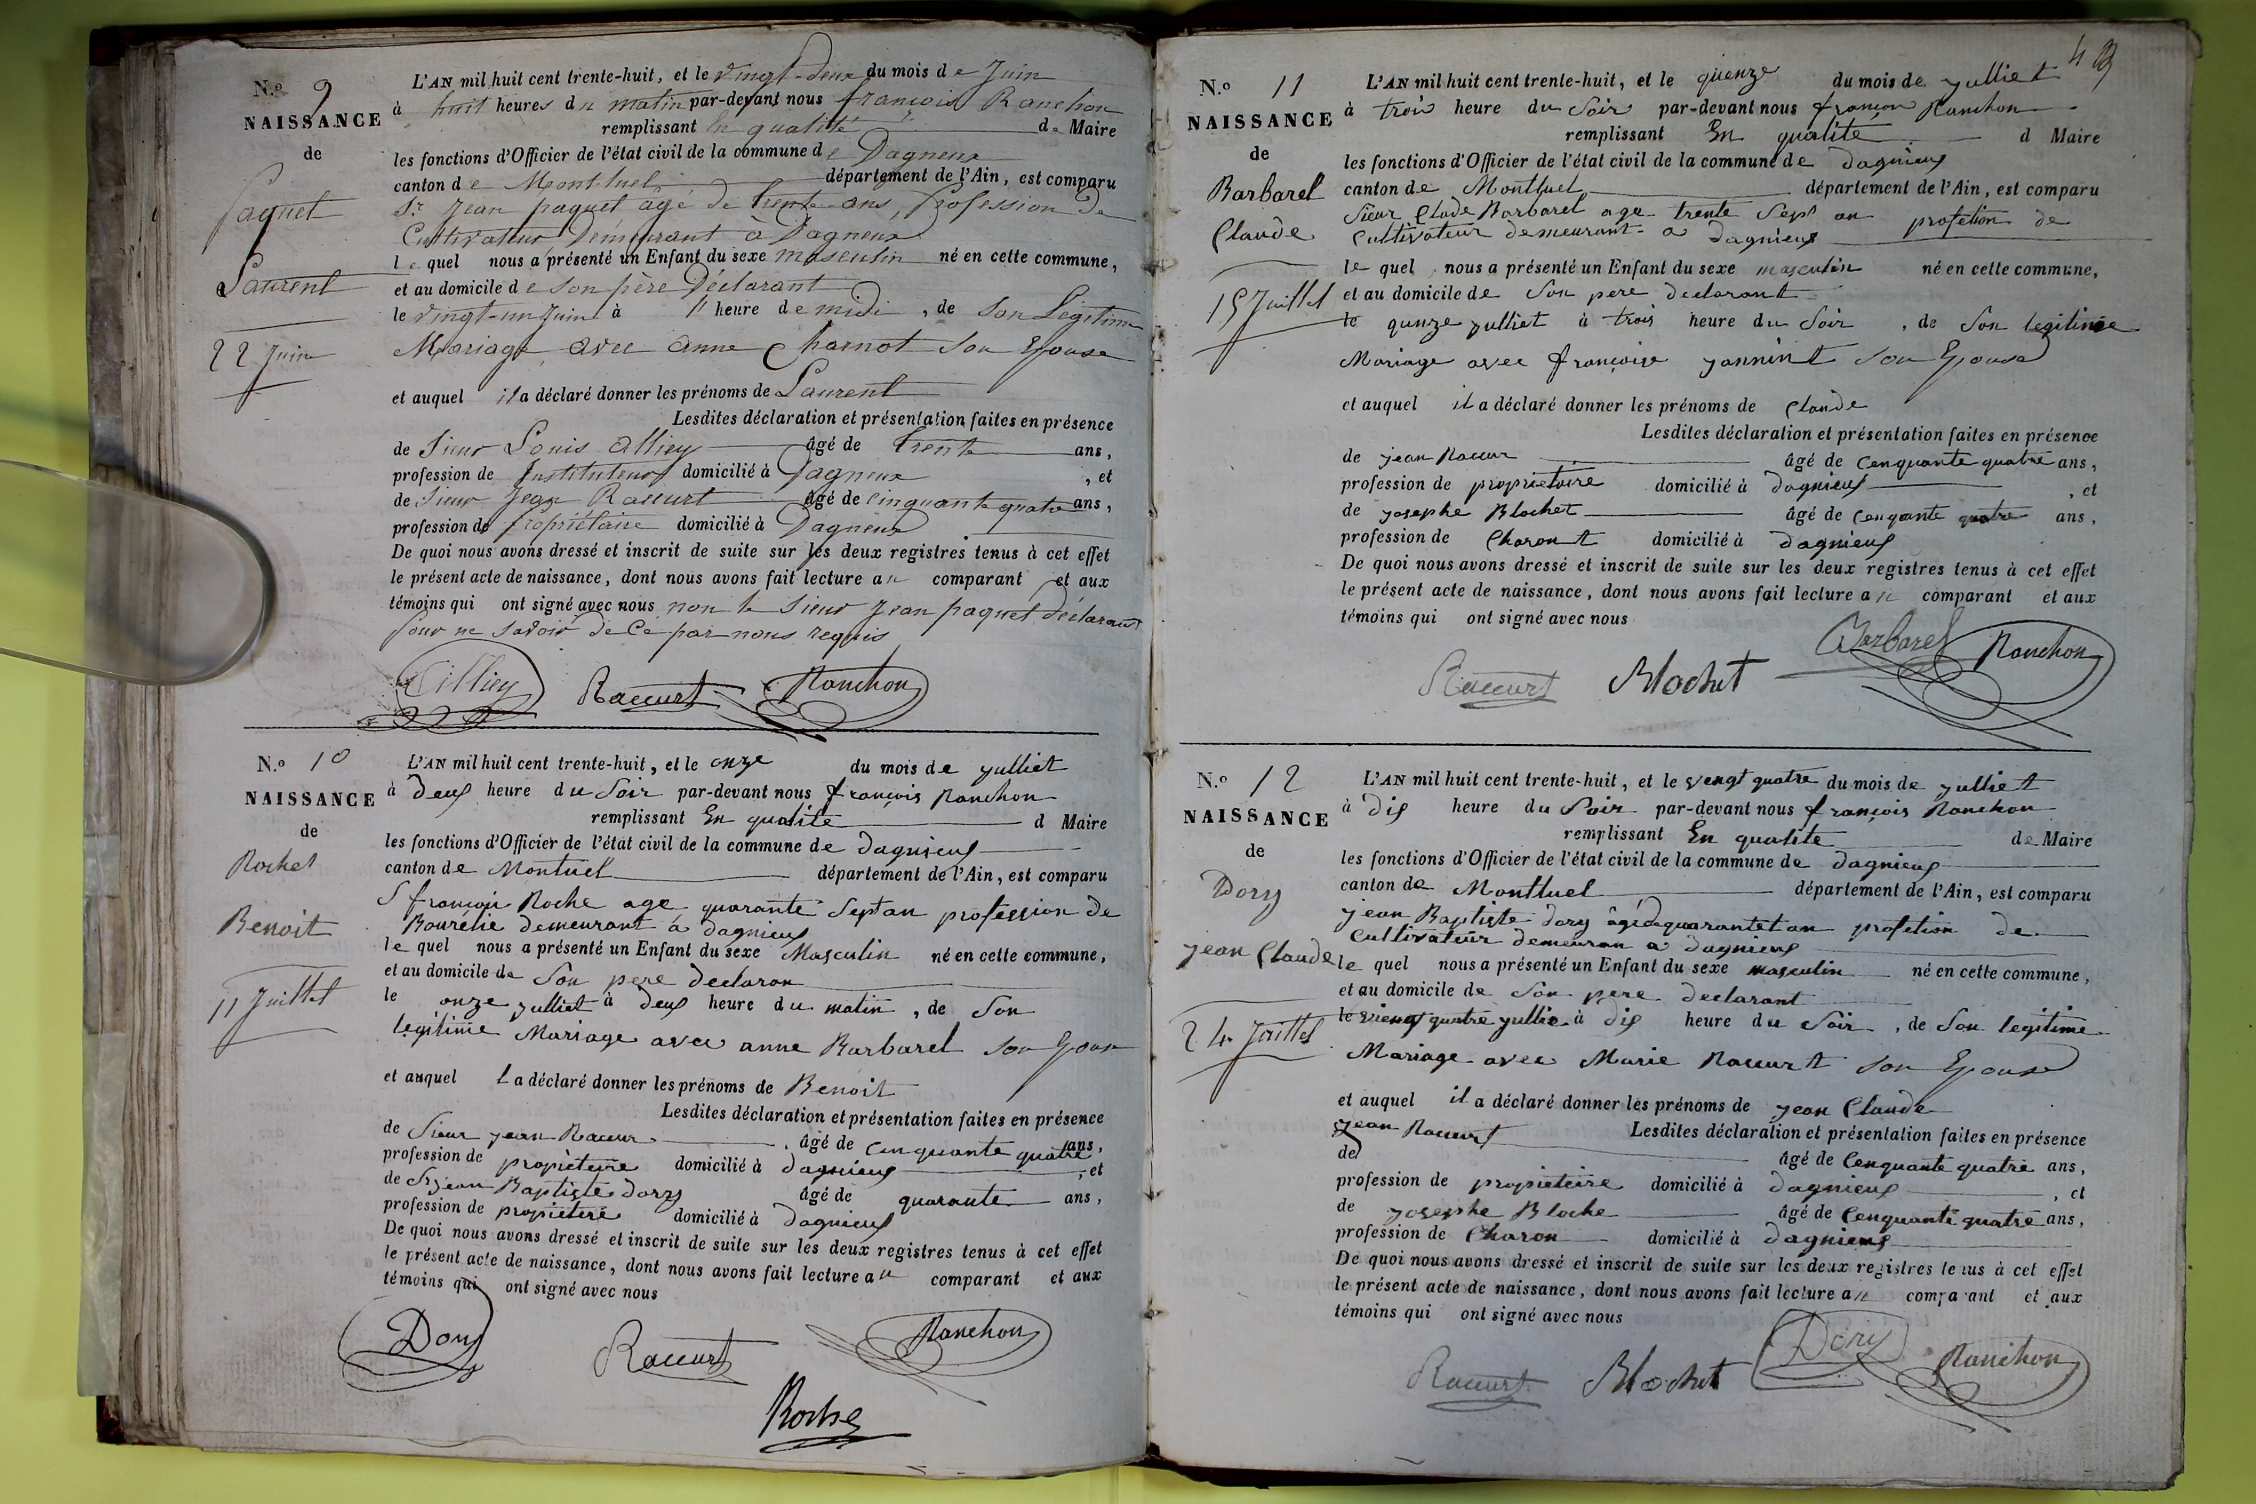 N.o 9
NAISSANCE
de
paquet
Laurent
22 Juin
L'AN mil huit cent trente-huit, et le vingt-deux du mois de Juin
à huit heures du matin par-devant nous francois Ranchon
remplissant En qualité de Maire
les fonctions d'Officier de l'état civil de la commune de Dagneux
canton de Montluel département de l'Ain, est comparu
Sr Jean paquet agé de trente ans, Profession De
Cultivateur Demeurant à Dagneux
le quel nous a présenté un Enfant du sexe masculin né en cette commune,
et au domicile de son père Déclarant
le vingt-un Juin à heure de midi, de son Légitime
Mariage avec anne Charnot son Epouse
et auquel il a déclaré donner les prénoms de Laurent
Lesdites déclaration et présentation faites en présence
de Sieur Louis alliey âgé de trente ans,
profession de Instituteur domicilié à Dagneux, et
de Sieur Jean Raccurt âgé de cinquante quatre ans,
profession de propriétaire domicilié à Dagneux
De quoi nous avons dressé et inscrit de suite sur les deux registres tenus à cet effet
le présent acte de naissance, dont nous avons fait lecture au comparant et aux
témoins qui ont signé avec nous non le Sieur Jean paquet déclarant
pour ne savoir de Ce par nous requis
alliey Raccurt Ranchon
N.o 10
NAISSANCE
de
Rochet
Benoit
11 Juillet
L'AN mil huit cent trente-huit, et le onze du mois de yulliet
à Deux heure du Soir par-devant nous françois Ranchon
remplissant En qualité d Maire
les fonctions d'Officier de l'état civil de la commune de dagnieux
canton de Montuel département de l'Ain, est comparu
S françois Roche age quarante Sept an profession de
Bourélie demeurant á dagnieux
le quel nous a présenté un Enfant du sexe Masculin né en cette commune,
et au domicile de Son pere declaron
le onze yulliet à Deux heure du matin, de Son
legitime Mariage avec anne Barbarel son Epouse
et auquel l a déclaré donner les prénoms de Benoit
Lesdites déclaration et présentation faites en présence
de Sieur jean Raccur âgé de cinquante quatre ans,
profession de propieteire domicilié à dagnieux, et
de Sr jean Baptiste dory âgé de quarante ans,
profession de propieteire domicilié à dagnieux
De quoi nous avons dressé et inscrit de suite sur les deux registres tenus à cet effet
le présent acte de naissance, dont nous avons fait lecture au comparant et aux
témoins qui ont signé avec nous
Dory Raccurt Ranchon
Roche
N.o 11
NAISSANCE
de
Barbarel
Claude
15 Juillet
L'AN mil huit cent trente-huit, et le quenze du mois de yulliet
à trois heure du Soir par-devant nous françon Ranchon
remplissant En qualité d Maire
les fonctions d'Officier de l'état civil de la commune de dagnieux
canton de Montluel département de l'Ain, est comparu
Sieur Clode Barbarel age trente Sept an profetion de
Cultivateur demeurant a dagnieux
le quel nous a présenté un Enfant du sexe masculin né en cette commune,
et au domicile de Son pere declarant
le qunze yulliet à trois heure du Soir, de Son legitimie
Mariage avec françoise yannint son Epouse
et auquel il a déclaré donner les prénoms de Claude
Lesdites déclaration et présentation faites en présence
de jean Raccur âgé de cenquante quatre ans,
profession de proprietoire domicilié à dagnieux, et
de josephe Blochet âgé de cenqante quatre ans,
profession de Charont domicilié à dagnieux
De quoi nous avons dressé et inscrit de suite sur les deux registres tenus à cet effet
le présent acte de naissance, dont nous avons fait lecture au comparant et aux
témoins qui ont signé avec nous
Raccurt Blochet Barbarel Ranchon
N.o 12
NAISSANCE
de
Dory
jean Claude
24 Juillet
L'AN mil huit cent trente-huit, et le vengt quatre du mois de yulliet
à dix heure du Soir par-devant nous françois Ranchon
remplissant En qualite de Maire
les fonctions d'Officier de l'état civil de la commune de dagnieux
canton de Montluel département de l'Ain, est comparu
jean Baptiste dory âgé de quarantet an profetion de
Cultivateur demeuran a dagnieux
le quel nous a présenté un Enfant du sexe masculin né en cette commune,
et au domicile de Son pere declarant
le viengt quatre yullie à dix heure du Soir, de Son legitime
Mariage avec Marie Raccurt son Epouse
et auquel il a déclaré donner les prénoms de jean Claude
jean Raccurt Lesdites déclaration et présentation faites en présence
de âgé de Cenquante quatre ans,
profession de propieteire domicilié à dagnieux, et
de josephe Bloche âgé de Cenquante quatre ans,
profession de Charon domicilié à dagnieux
De quoi nous avons dressé et inscrit de suite sur les deux registres tenus à cet effet
le présent acte de naissance, dont nous avons fait lecture au comparant et aux
témoins qui ont signé avec nous
Raccurt Blochet Dory Ranchon